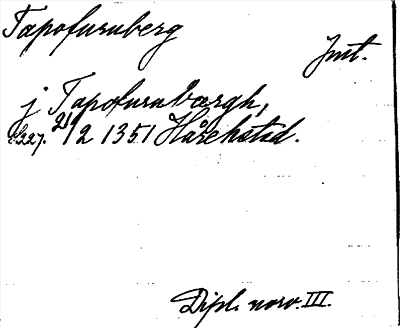 Tapofurnberg
Jmt.
j Tapofurnbærgh,
s.227. 21/2 1351 Hårekstad.
Dipl. norv. III.